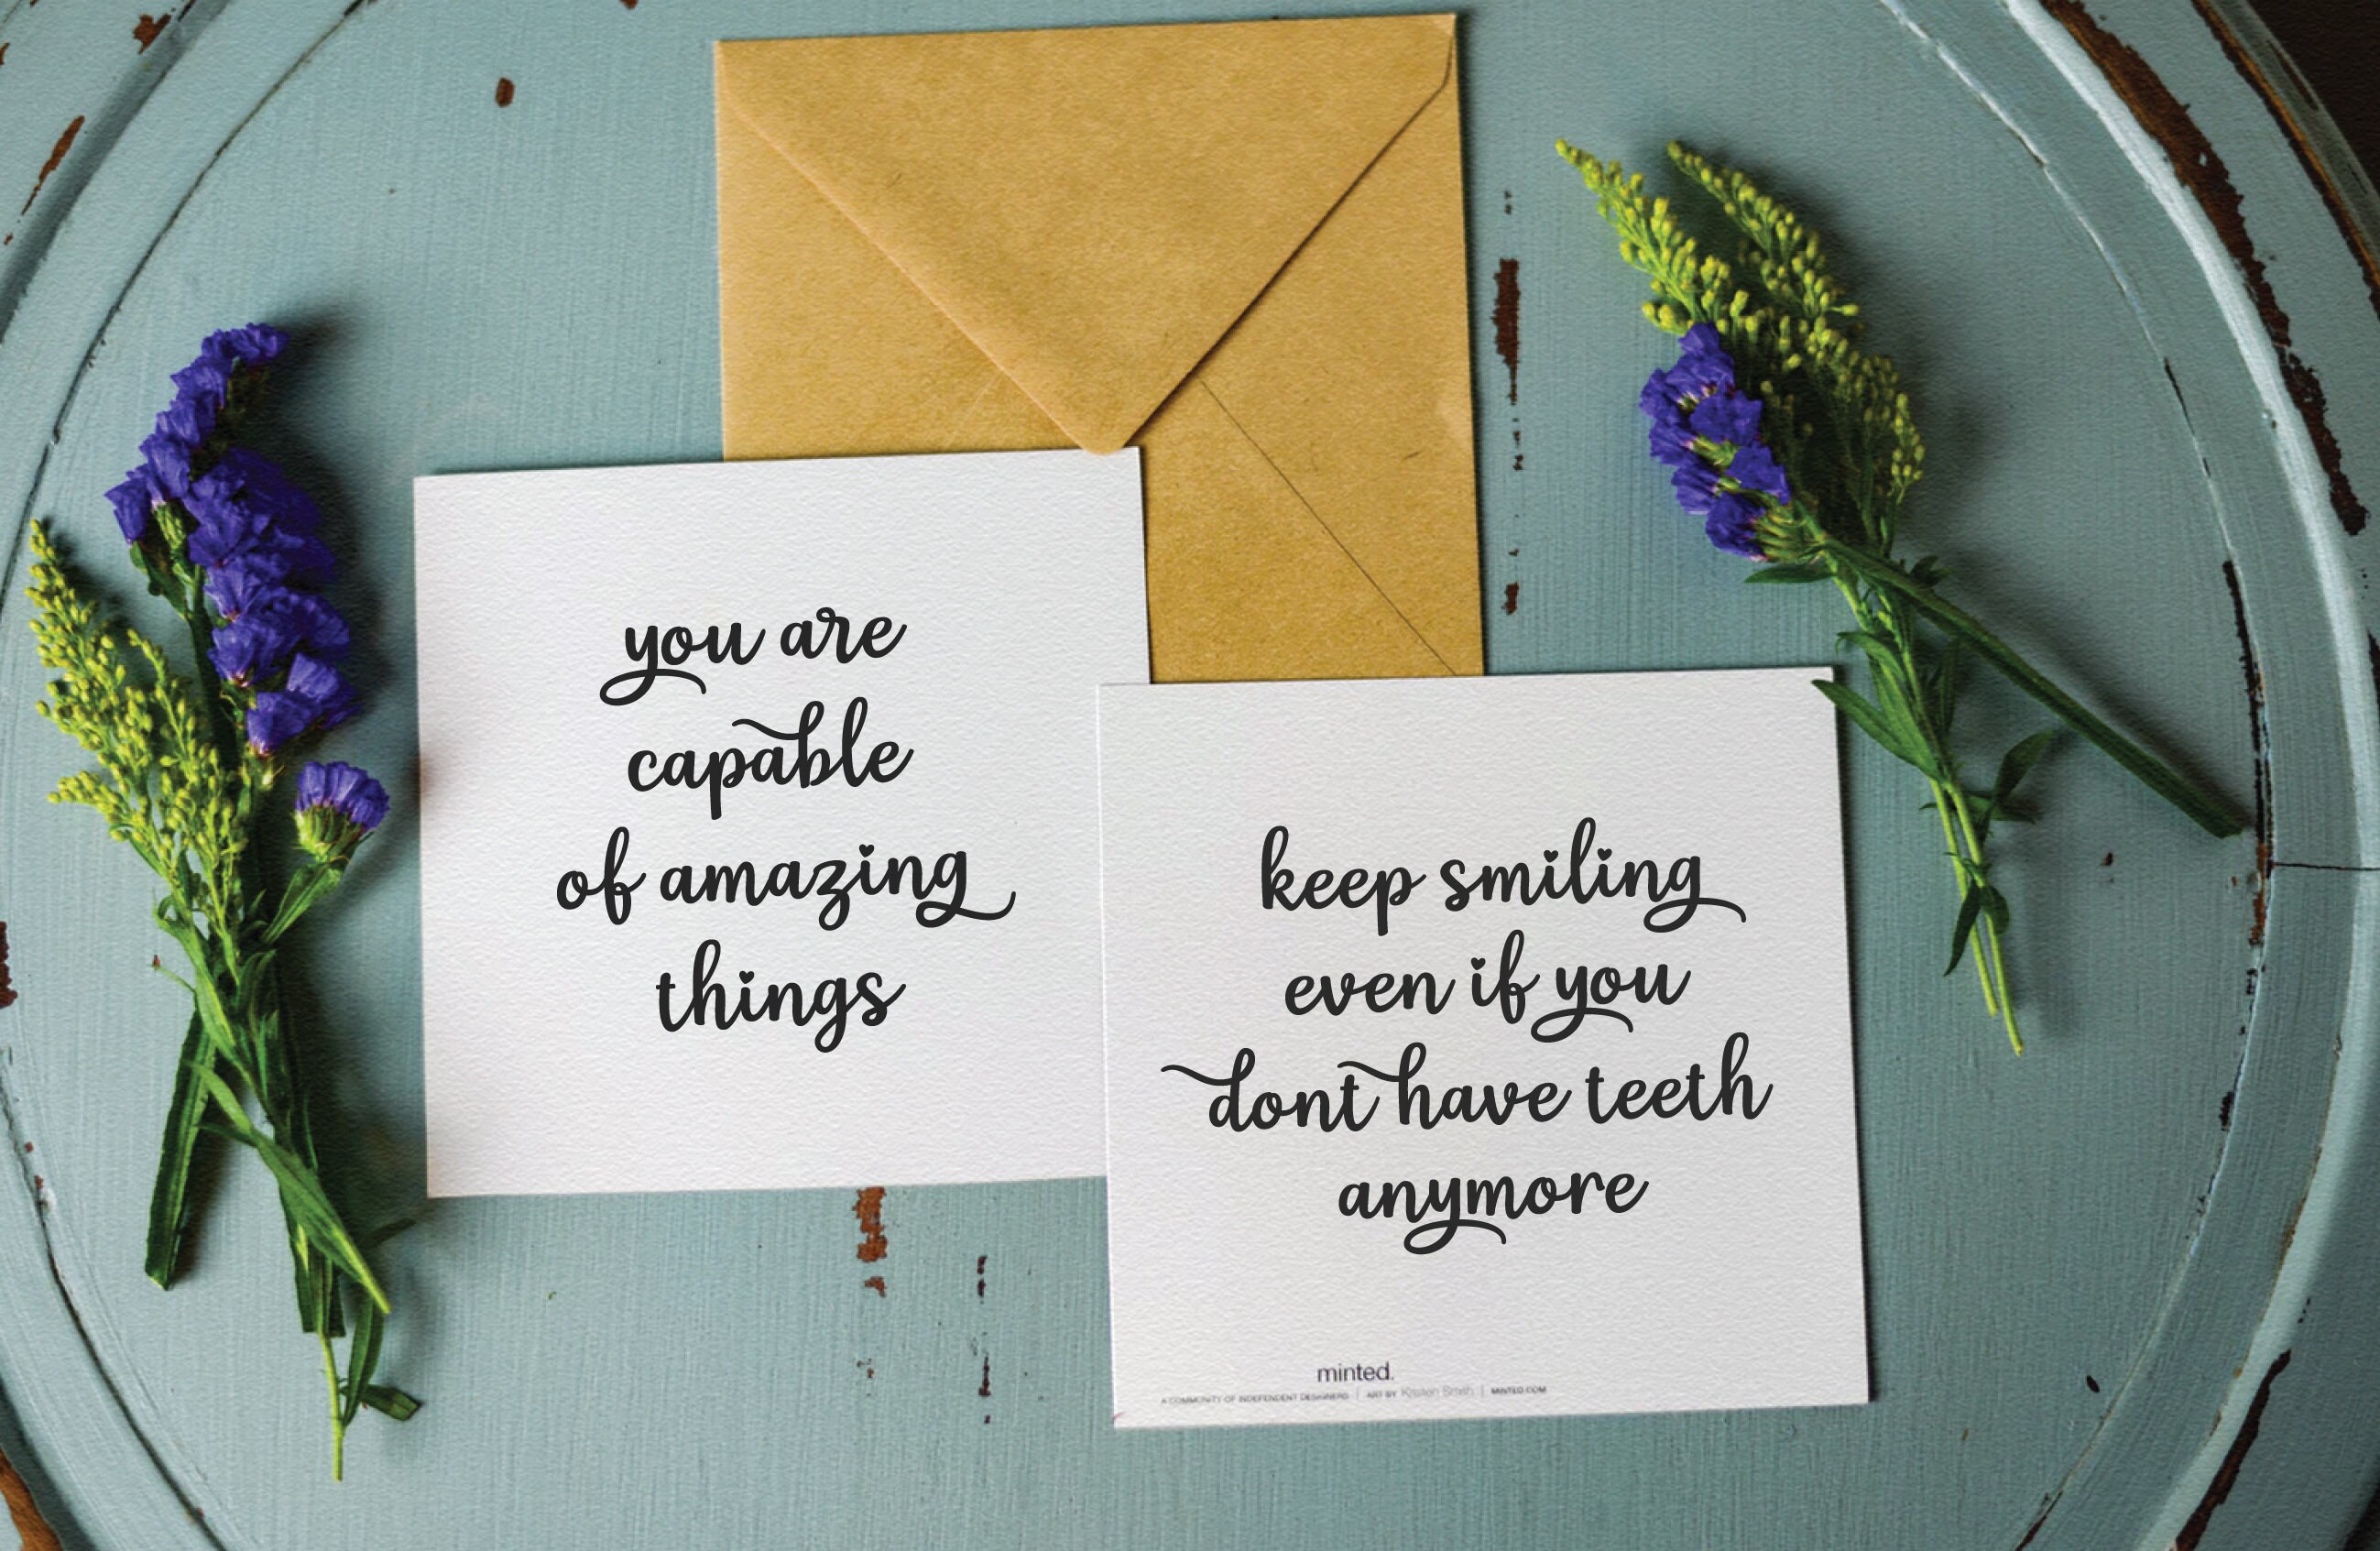 you are
capable
of amazing
things
keep smiling
even if you
dont have teeth
anymore
minted.
A COMMUNITY OF INDEPENDENT DESIGNERS | ART BY Kristen Smith | MINTED.COM